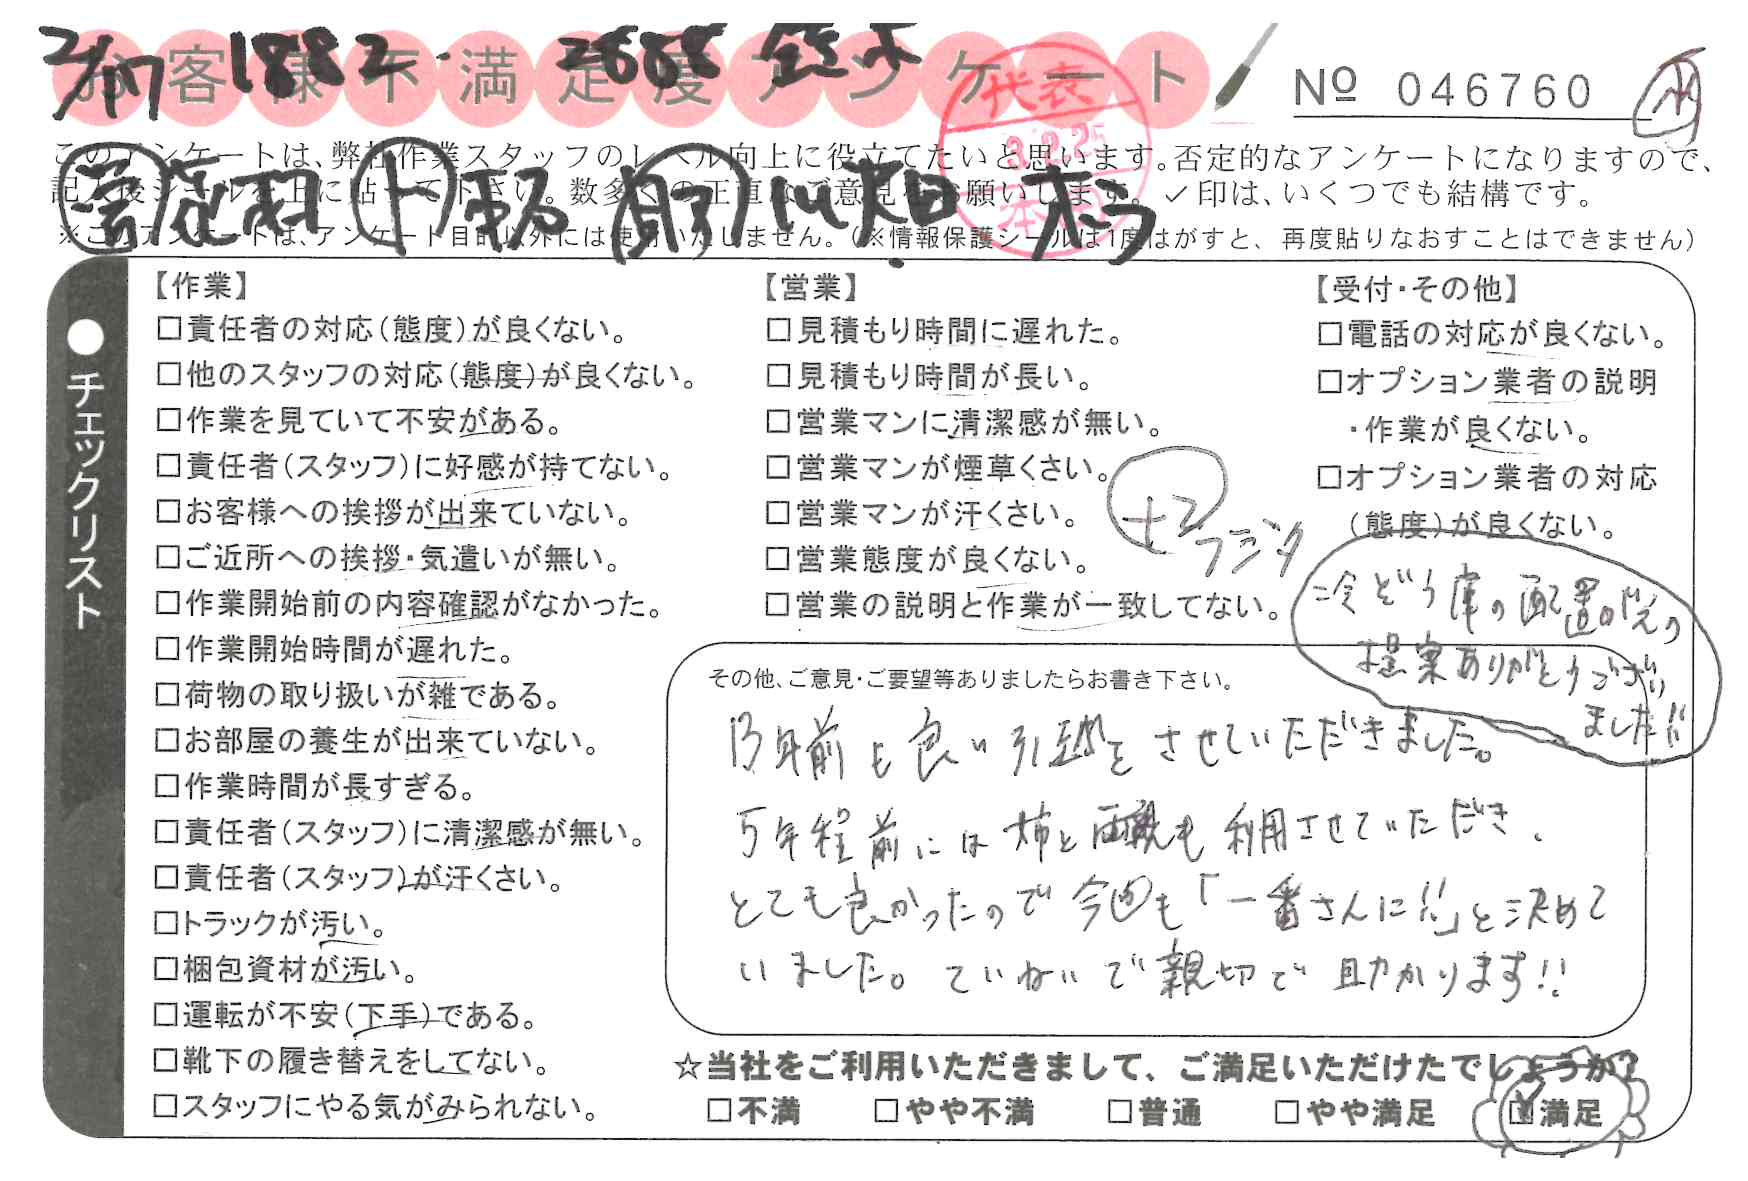 2/17 1882 - 2688 鈴木
お客様不満足度アンケート
№ 046760
代表 3.2.25
このアンケートは、弊社作業スタッフのレベル向上に役立てたいと思います。否定的なアンケートになりますので、
記入後シールを上に貼って下さい。数多くの正直なご意見をお願いします。✓印は、いくつでも結構です。
※このアンケートは、アンケート目的以外には使用いたしません。(※情報保護シールは1度はがすと、再度貼りなおすことはできません)
●チェックリスト
【作業】
□責任者の対応(態度)が良くない。
□他のスタッフの対応(態度)が良くない。
□作業を見ていて不安がある。
□責任者(スタッフ)に好感が持てない。
□お客様への挨拶が出来ていない。
□ご近所への挨拶・気遣いが無い。
□作業開始前の内容確認がなかった。
□作業開始時間が遅れた。
□荷物の取り扱いが雑である。
□お部屋の養生が出来ていない。
□作業時間が長すぎる。
□責任者(スタッフ)に清潔感が無い。
□責任者(スタッフ)が汗くさい。
□トラックが汚い。
□梱包資材が汚い。
□運転が不安(下手)である。
□靴下の履き替えをしてない。
□スタッフにやる気がみられない。
【営業】
□見積もり時間に遅れた。
□見積もり時間が長い。
□営業マンに清潔感が無い。
□営業マンが煙草くさい。
□営業マンが汗くさい。
□営業態度が良くない。
□営業の説明と作業が一致してない。
【受付・その他】
□電話の対応が良くない。
□オプション業者の説明
・作業が良くない。
□オプション業者の対応
(態度)が良くない。
冷ぞう庫の配置がえの
提案ありがとうござい
ました!!
その他、ご意見・ご要望等ありましたらお書き下さい。
13年前も良い引越をさせていただきました。
5年程前には姉と両親も利用させていただき、
とても良かったので今回も「一番さんに!!」と決めて
いました。ていねいで親切で助かります!!
☆当社をご利用いただきまして、ご満足いただけたでしょうか?
□不満 □やや不満 □普通 □やや満足 ☑満足